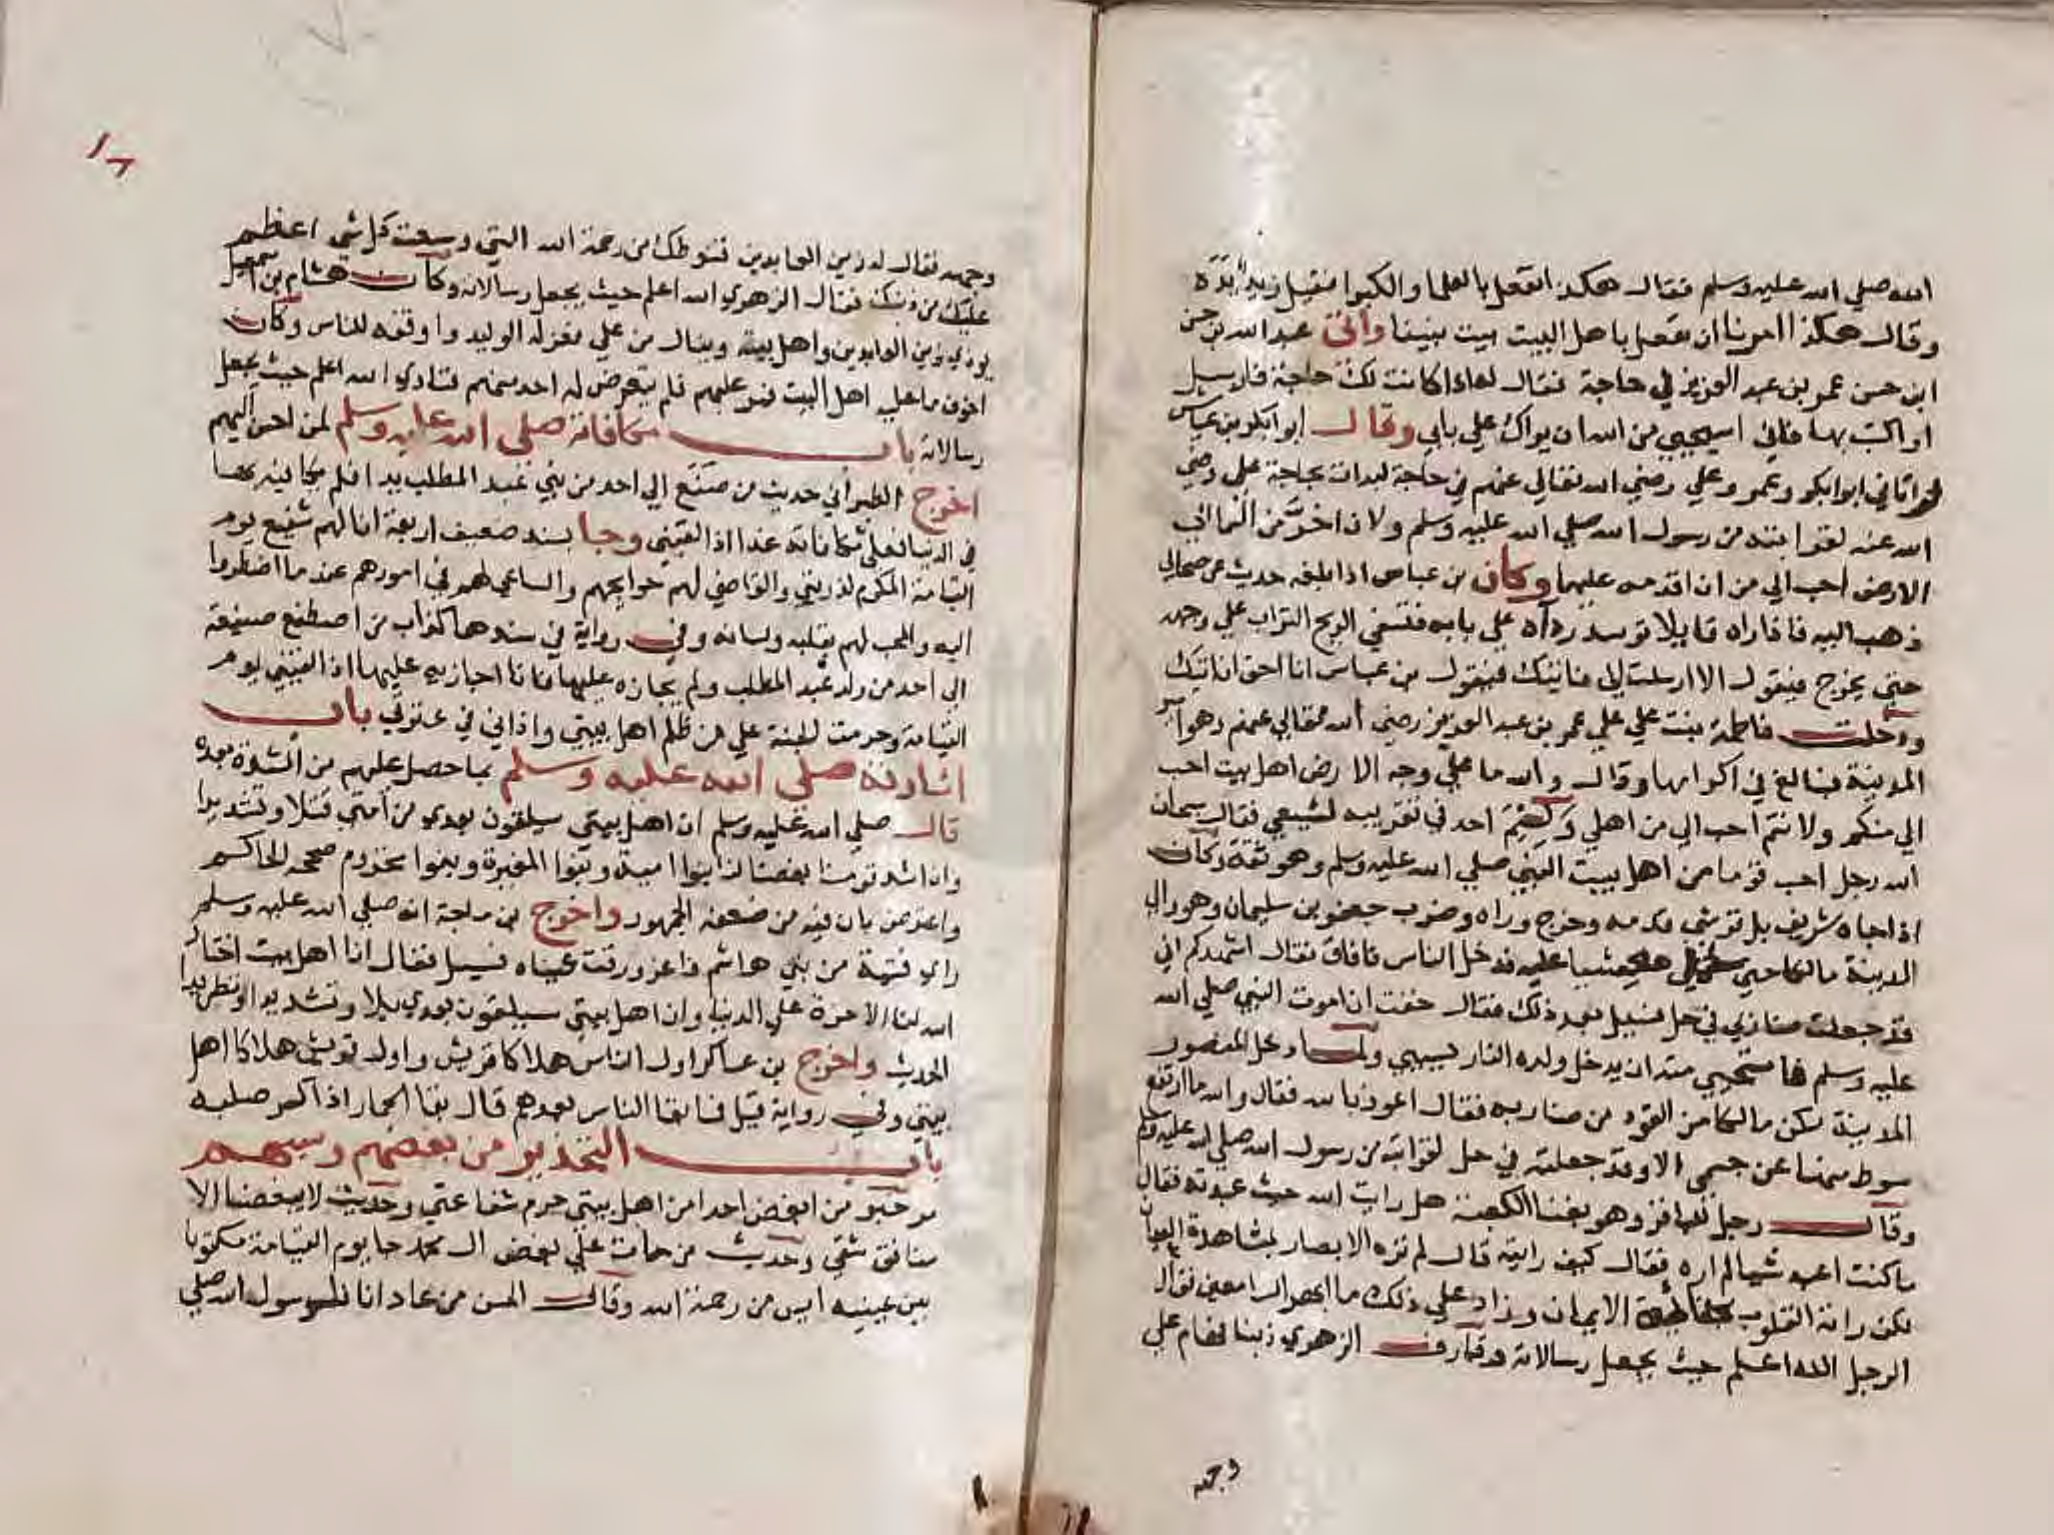 الله صلي الله عليه وسلم فقال هكذا نفعل بالعلما والكبرا فقبل زيد يده
وقال هكذا امرنا ان نفعل باهل البيت بيت نبينا واتي عبد الله بن حسن
ابن حسن عمر بن عبد العزيز في حاجة فقال له اذا كانت لك حاجة فارسل
او اكتب بها فاني استحيي من الله ان يراك علي بابي وقال ابو ابكر بن عياش
لو اتاني ابو ابكر وعمر وعلي رضي الله تعالي عنهم في حاجة لبدات بحاجة علي رضي
الله عنه لقرابته من رسول الله صلي الله عليه وسلم ولان اخر من السما الي
الارض احب الي من ان اقدمه عليهما وكان بن عباس اذا بلغه حديث عن صحابي
ذهب اليه فاذا راه قايلا توسد رداه علي بابه فتسفي الريح التراب علي وجهه
حتي يخرج فيقول الا ارسلت الي فاتيك فيقول بن عباس انا احق ان اتيك
ودخلت فاطمة بنت علي علي عمر بن عبد العزيز رضي الله تعالي عنهم وهو امير
المدينة فبالغ في اكرامها وقال والله ما علي وجه الارض اهل بيت احب
الي منكم ولانتم احب الي من اهلي احد في تقريبه لشيعي فقال سبحان
الله رجل احب قوما من اهل بيت النبي صلي الله عليه وسلم وهو ثقة وكان
اذا جاه شريف بل قرشي قدمه وخرج وراه وضرب جعفر بن سليمان وهو والي
المدينة مالكا حتي حمل مغشيا عليه فدخل الناس فافاق فقال اشهدكم اني
قد جعلت ضاربي في حل فسيل بعد ذلك فقال خفت ان اموت النبي صلي الله
عليه وسلم فاستحيي منه ان يدخل ولده النار بسببي ولما دخل المنصور
المدينة مكن مالكا من القود من ضاربه فقال اعوذ بالله فقال والله ما ارتفع
سوط منها عن جسمي الا وقد جعلته في حل لقرابته من رسول الله صلي الله عليه وسلم
وقال رجل للباقر وهو بفنا الكعبة هل رايت الله حيث عبدته فقال
ما كنت اعبد شيا لم اره فقال كيف رايته قال لم تره الابصار بمشاهدة العيان
لكن راته القلوب بحقايق الايمان وزاد علي ذلك ما ابهر السامعين فقال
الرجل الله اعلم حيث يجعل رسالاته وقارف الزهري ذنبا فهام علي
وجهه
١٦
وجهه فقال له زين العابدين قنوطك من رحمة الله التي وسعت كل شي اعظم
عليك من ذنبك فقال الزهري الله اعلم حيث يجعل رسالاته وكان هشام بن اسمعيل
يوذي زين العابدين واهل بيته وينال من علي فعزله الوليد واوقفه للناس وكان
اخوف ما عليه اهل البيت فمر عليهم فلم يتعرض له احد منهم فنادي الله اعلم حيث يجعل
رسالاته باب مكافاته صلي الله عليه وسلم لمن احسن اليهم
اخرج الطبراني حديث من صنع الي احد من بني عبد المطلب يدا فلم يكافيه بها
في الدنيا فعلي مكافاته غدا اذا لقيني وجا بسند ضعيف اربعة انا لهم شفيع يوم
القيامة المكرم لذريتي والقاضي لهم حوايجهم والساعي لهم في امورهم عند ما اضطروا
اليه والمحب لهم بقلبه ولسانه وفي رواية في سندها كذاب من اصطنع صنيعة
الي احد من ولد عبد المطلب ولم يجازه عليها فانا اجازيه عليها اذا لقيني يوم
القيامة وحرمت الجنة علي من ظلم اهل بيتي واذاني في عترتي باب
اشارته صلي الله عليه وسلم بما حصل عليهم من الشدة بعده
قال صلي الله عليه وسلم ان اهل بيتي سيلقون بعدي من امتي قتلا وتشديدا
وان اشد قومنا لنا بغضا بنوا امية وبنوا المغيرة وبنوا مخزوم صححه الحاكم
واعترض بان فيه من ضعفه الجمهور واخرج بن ماجة انه صلي الله عليه وسلم
راي فتية من بني هاشم فاغرورقت عيناه فسيل فقال انا اهل بيت اختار
الله لنا الاخرة علي الدنيا وان اهل بيتي سيلقون بعدي بلا وتشديدا وتطريدا
الحديث واخرج بن عساكر اول الناس هلاكا قريش واول قريش هلاكا اهل
بيتي وفي رواية قيل فما بقا الناس بعدهم قال بقا الحمار اذا كسر صلبه
باب التحذير من بغضهم وسبهم
مر خبر من ابغض احدا من اهل بيتي حرم شفاعتي وحديث لا يبغضنا الا
منافق شقي وحديث من مات علي بغض ال محمد جا يوم القيامة مكتوبا
بين عينيه ايس من رحمة الله وقال الحسن من عادانا فلرسول الله صلي